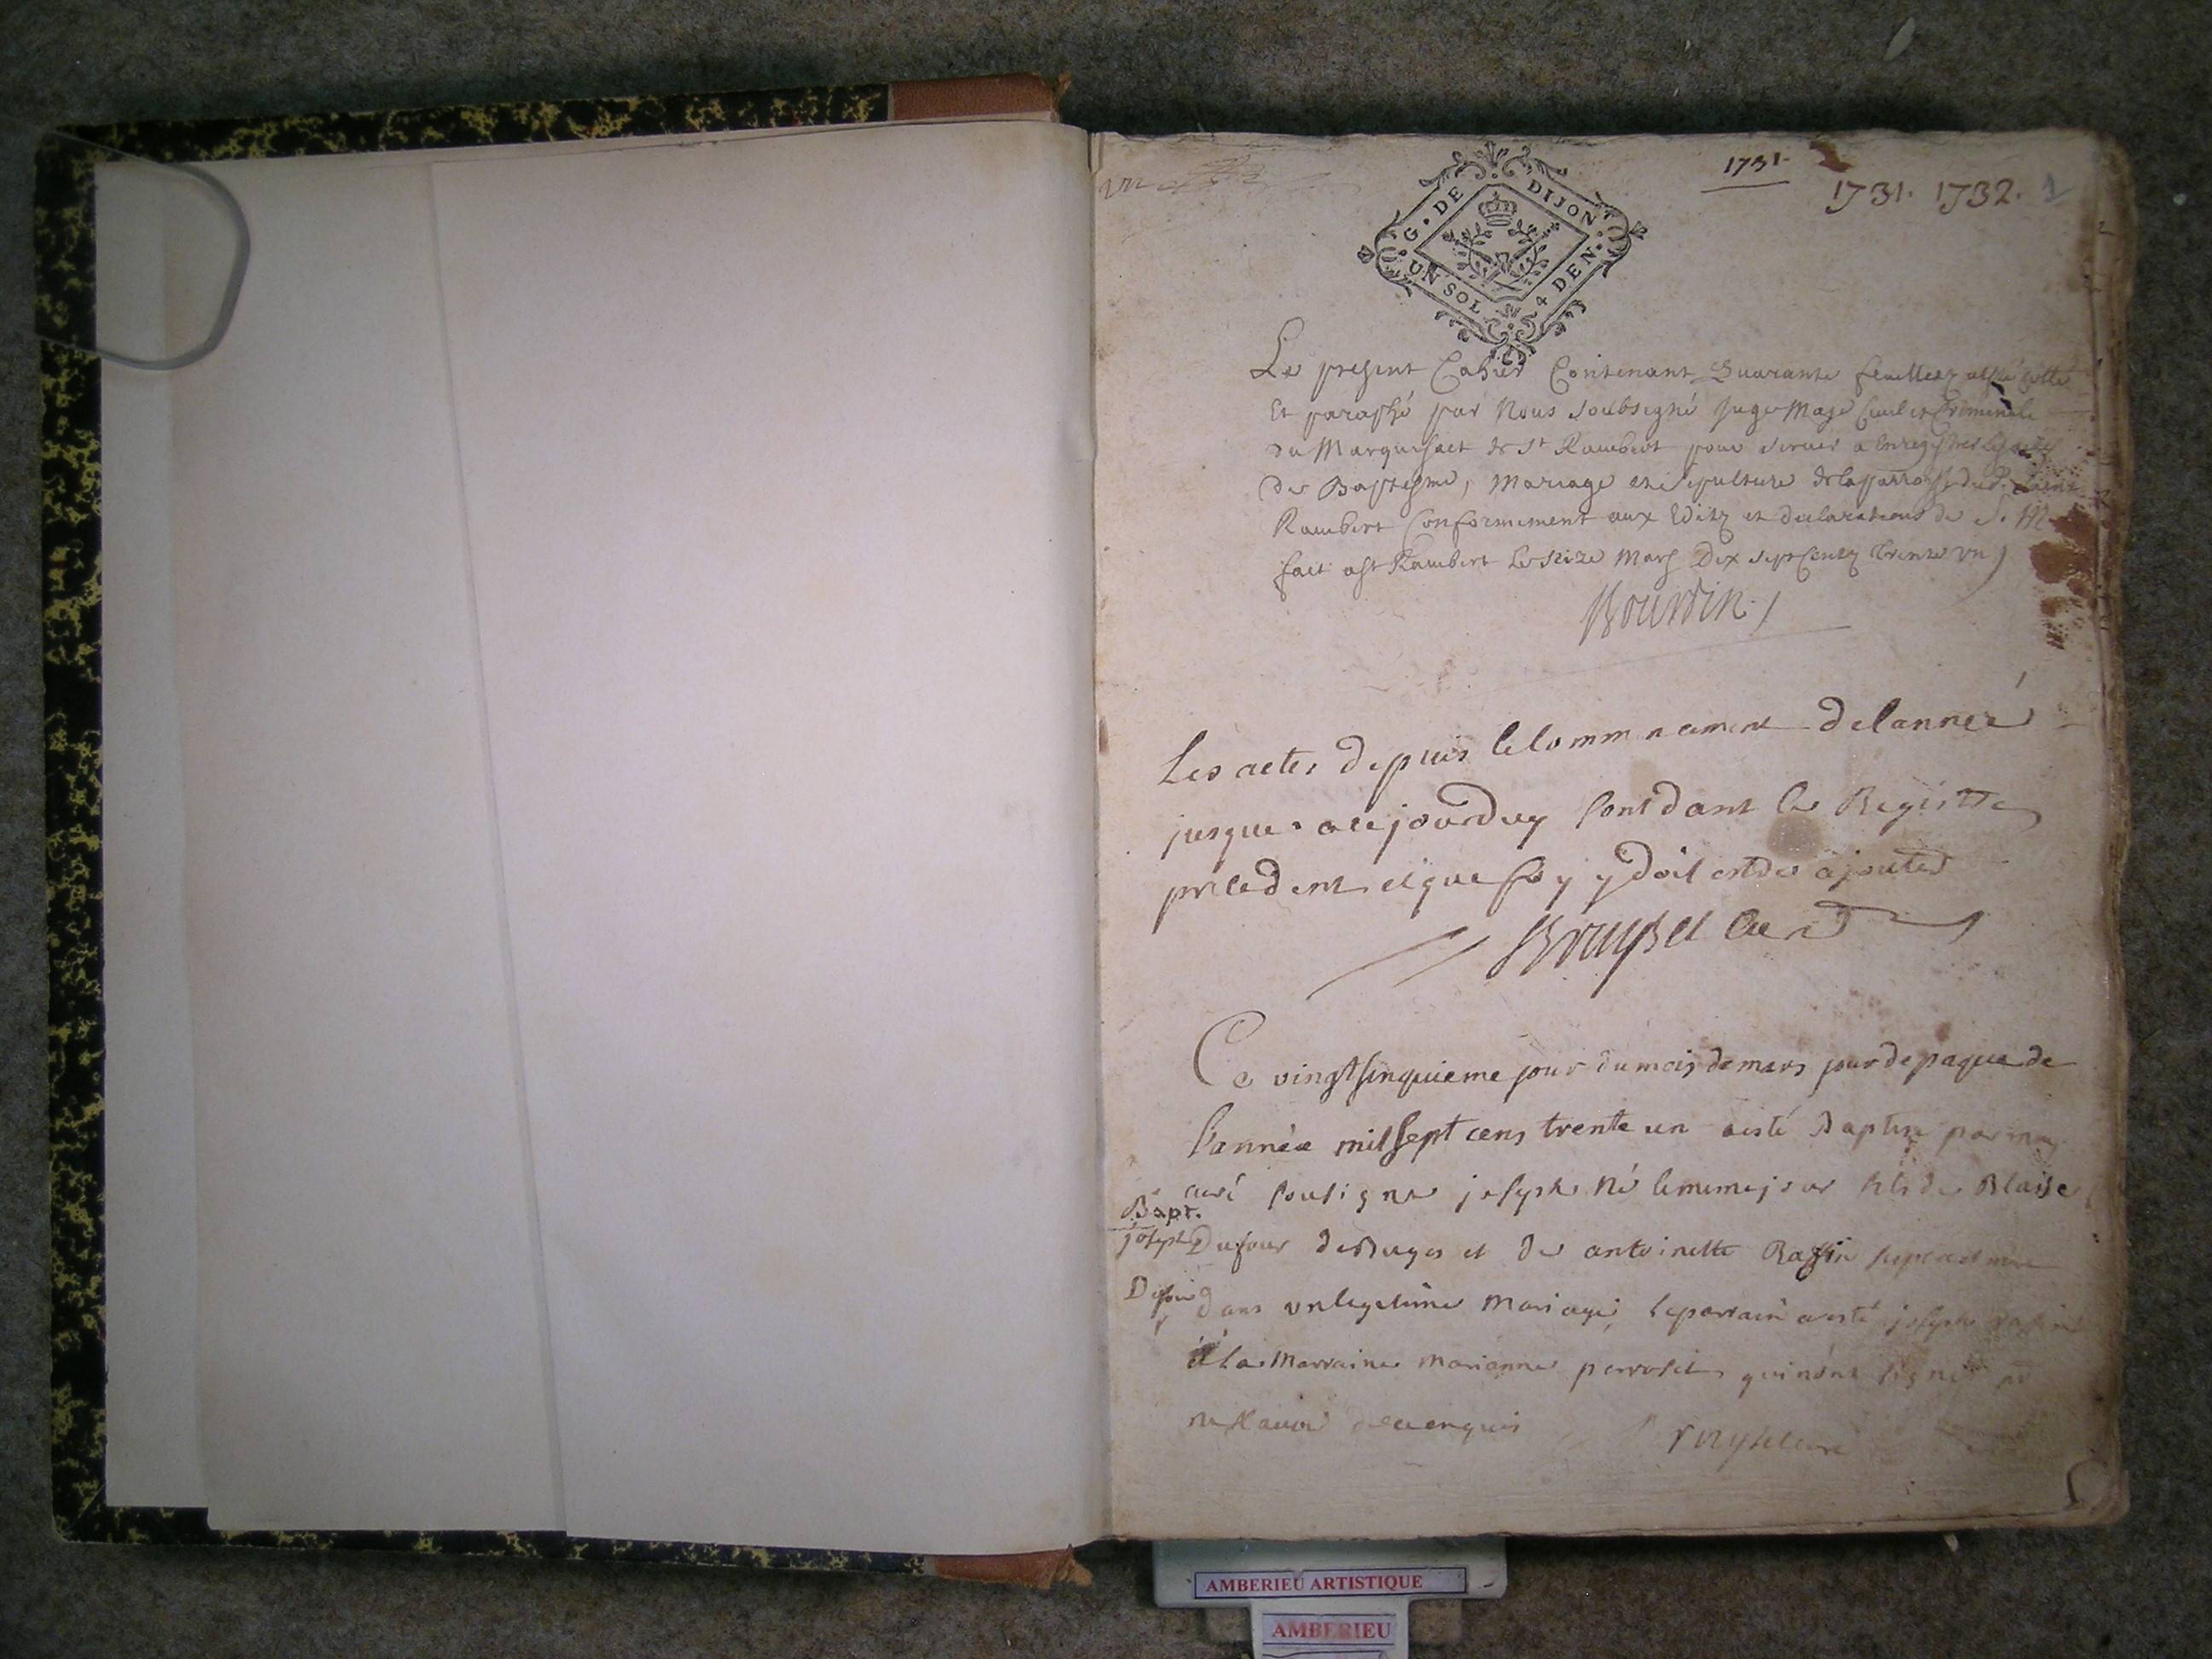 un
1731.
1731. 1732. 1
G. DE DIJON.
UN SOL 4 DEN.
Le present Cahier Contenant Quarante feuilletz cotté
Et paraphé par Nous soubsigné Juge Mage Civil et Criminele
du Marquisact de St Rambert pour servir a Enregistrer les actes
de Baptesme, Mariage et sepulture de la parroisse dud. Saint
Rambert Conformement aux Editz et declarations de S. M
fait a St Rambert Le seize Mars Dix sept Centz Trente un
Bourdin
Les actes depuis le Commencement de lanneé
jusques a ce jourduy sont dant le Registre
precedent et que foy y doit estre ajouteé
Bruyset Curé
Ce vingtsinquieme jour du mois de mars jour de paque de
l'année mil sept cens trente un a esté Baptisé par moy
curé sousigné joseph né le meme jour fils de Blaise
Bapt.
joseph Dufour de Buges et de antoinette Raffin ses pere et mere
Dufour dans un legetime Mariage, le parrain a esté joseph raffin
et la Marraine Marianne perroset qui n'ont signé
ne sçavoir de ce enquis
Bruyset curé
AMBERIEU ARTISTIQUE
AMBERIEU